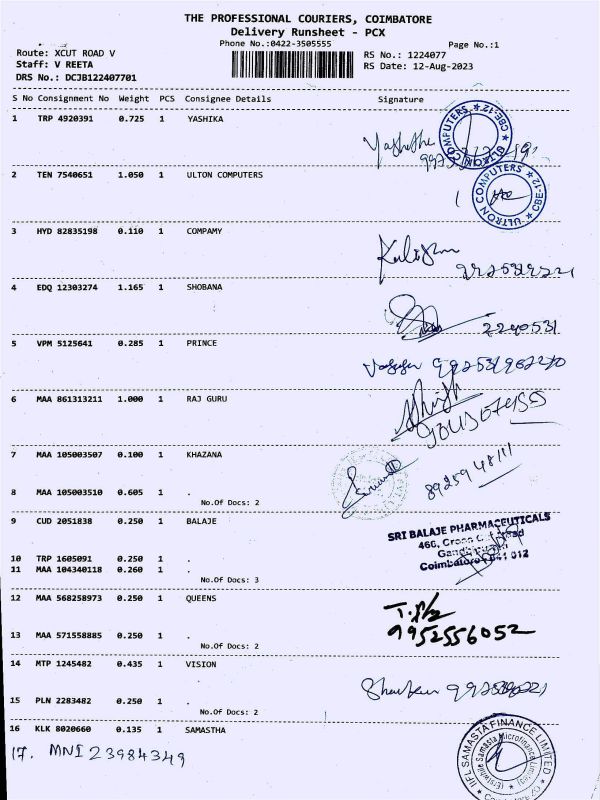 THE PROFESSIONAL COURIERS, COIMBATORE
Delivery Runsheet - PCX
Phone No.:0422-3505555
Page No.:1
Route: XCUT ROAD V
Staff: V REETA
DRS No.: DCJB122407701
RS No.: 1224077
RS Date: 12-Aug-2023
S No Consignment No Weight PCS Consignee Details Signature
1 TRP 4920391 0.725 1 YASHIKA
2 TEN 7540651 1.050 1 ULTON COMPUTERS
ULTRON COMPUTERS ★ CBE-12 ★
3 HYD 82835198 0.110 1 COMPAMY
4 EDQ 12303274 1.165 1 SHOBANA
2240531
5 VPM 5125641 0.285 1 PRINCE
6 MAA 861313211 1.000 1 RAJ GURU
7 MAA 105003507 0.100 1 KHAZANA
8925948111
8 MAA 105003510 0.605 1 .
No.Of Docs: 2
9 CUD 2051838 0.250 1 BALAJE
SRI BALAJE PHARMACEUTICALS
460, Cross Cut Road
Coimbatore - 641 012
10 TRP 1605091 0.250 1 .
11 MAA 104340118 0.260 1 .
No.Of Docs: 3
12 MAA 568258973 0.250 1 QUEENS
9952556052
13 MAA 571558885 0.250 1 .
No.Of Docs: 2
14 MTP 1245482 0.435 1 VISION
15 PLN 2283482 0.250 1 .
No.Of Docs: 2
16 KLK 8020660 0.135 1 SAMASTHA
17. MNI 23984349
IIFL SAMASTA FINANCE LIMITED
(Erstwhile Samasta Microfinance Limited)